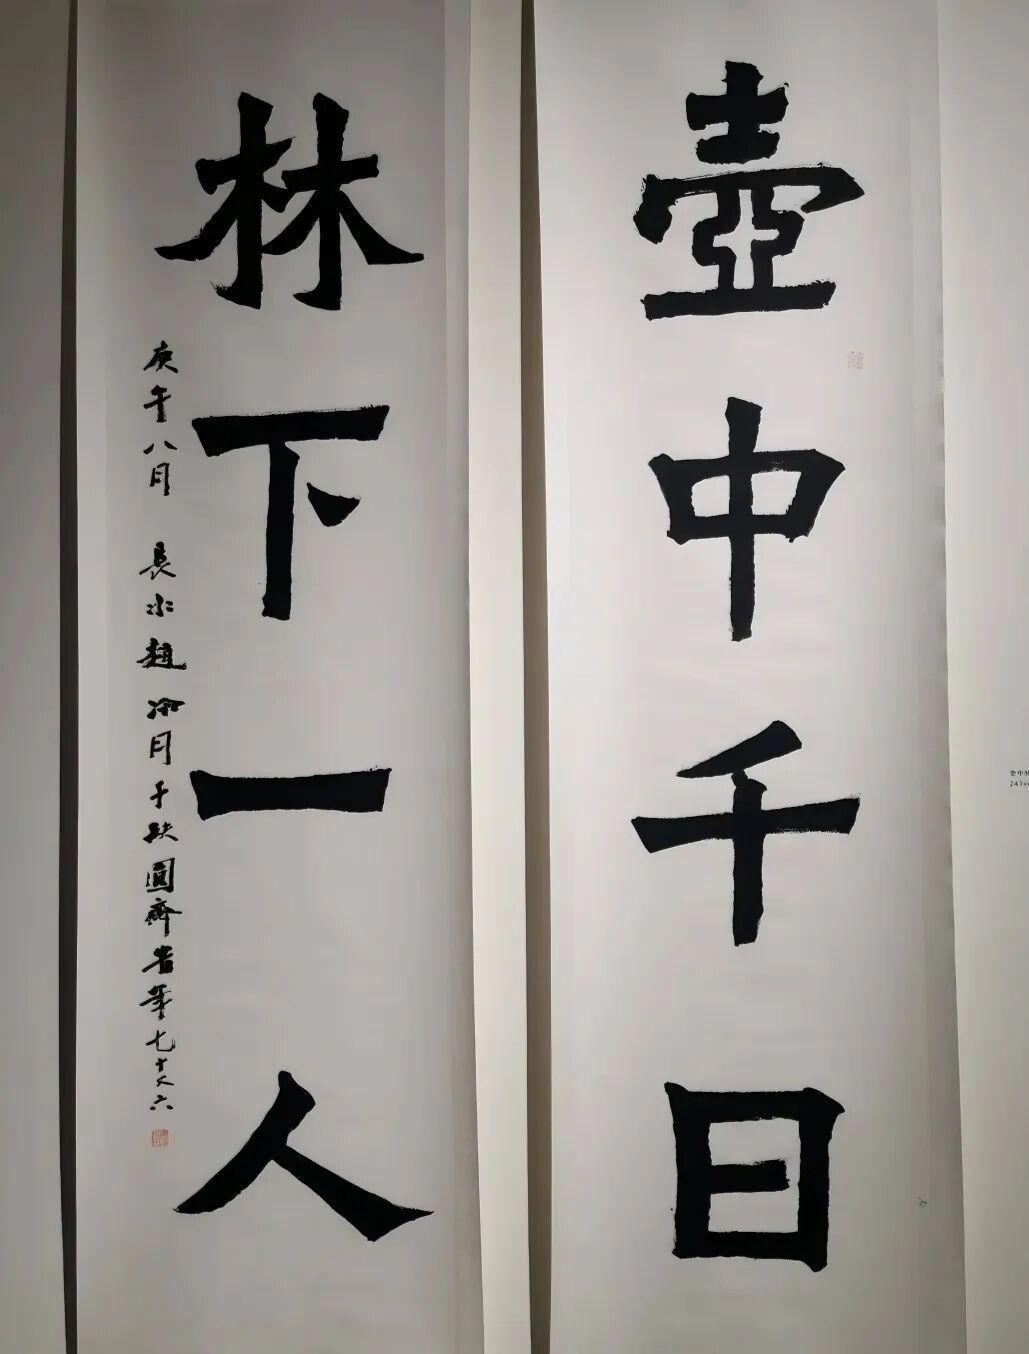 壺中千日
林下一人
庚午八月 長水趙冷月于缺圓齋省筆七十又六